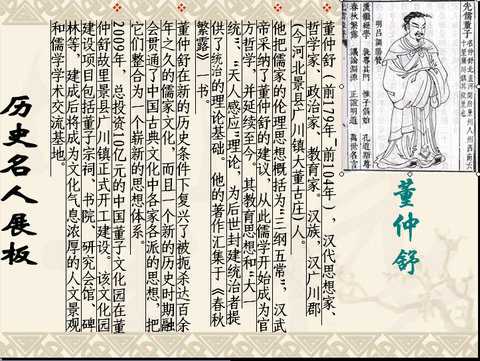 先儒董子
春秋繁露 議論淵源 正誼明道 萬世名言
董仲舒
董仲舒（前179年_前104年），汉代思想家、
哲学家、政治家、教育家。汉族，汉广川郡
(今河北景县广川镇大董古庄）人。
他把儒家的伦理思想概括为“三纲五常”，汉武
帝采纳了董仲舒的建议，从此儒学开始成为官
方哲学，并延续至今。其教育思想和“大一
统”、“天人感应”理论，为后世封建统治者提
供了统治的理论基础。他的著作汇集于《春秋
繁露》一书。
董仲舒在新的历史条件下复兴了被扼杀达百余
年之久的儒家文化。而且一个新的历史时期融
会贯通了中国古典文化中各家各派的思想，把
它们整合为一个崭新的思想体系
2009年，总投资10亿元的中国董子文化园在董
仲舒故里景县广川镇正式开工建设。该文化园
建设项目包括董子宗祠、书院、研究会馆、碑
林等，建成后将成为文化气息浓厚的人文景观
和儒学学术交流基地。
历史名人展板